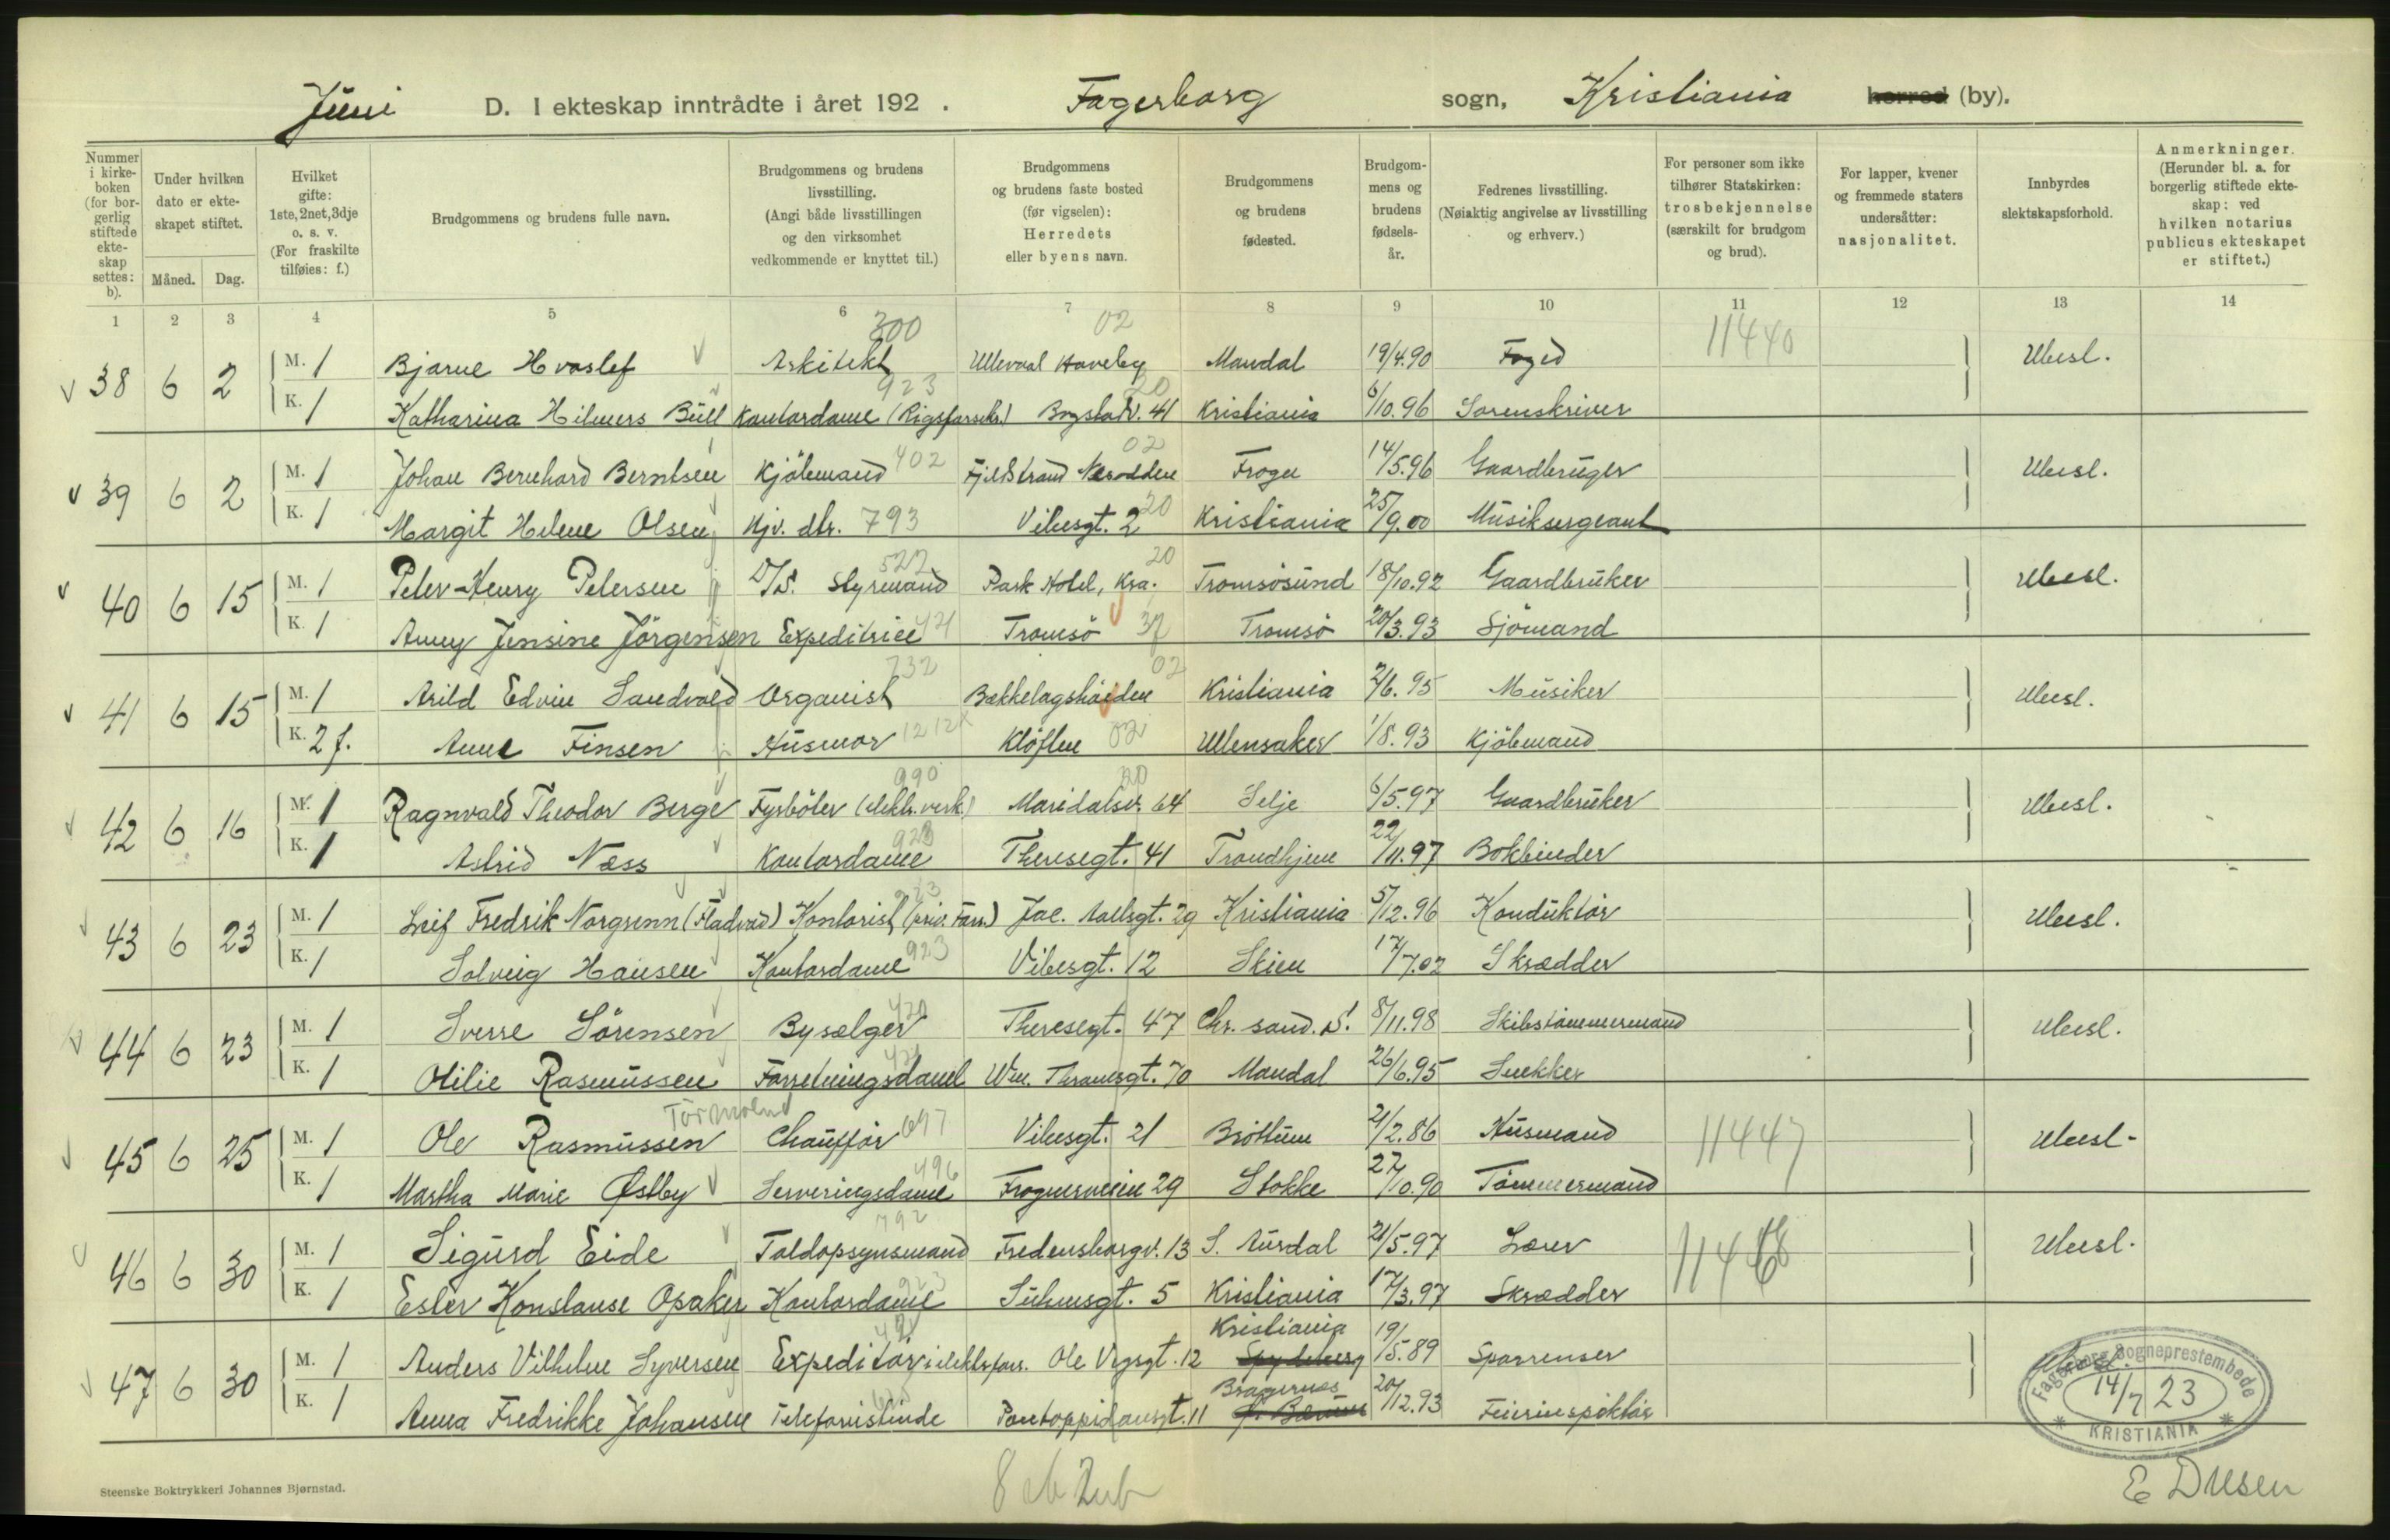 Juni D. I ekteskap inntrådte i året 192 . Fagerborg sogn, Kristiania herred (by).
Nummer i kirkeboken (for borgerlig stiftede ekteskap settes: b).
Under hvilken dato er ekteskapet stiftet.
Måned. Dag.
Hvilket gifte: 1ste, 2net, 3dje o. s. v. (For fraskilte tilføies: f.)
Brudgommens og brudens fulle navn.
Brudgommens og brudens livsstilling. (Angi både livsstillingen og den virksomhet vedkommende er knyttet til.)
Brudgommens og brudens faste bosted (før vigselen): Herredets eller byens navn.
Brudgommens og brudens fødested.
Brudgommens og brudens fødselsår.
Fedrenes livsstilling. (Nøiaktig angivelse av livsstilling og erhverv.)
For personer som ikke tilhører Statskirken: trosbekjennelse (særskilt for brudgom og brud).
For lapper, kvener og fremmede staters undersåtter: nasjonalitet.
Innbyrdes slektskapsforhold.
Anmerkninger. (Herunder bl. a. for borgerlig stiftede ekteskap: ved hvilken notarius publicus ekteskapet er stiftet.)
1 2 3 4 5 6 7 8 9 10 11 12 13 14
300 02 11440
38 6 2 M. 1 Bjarne Hvoslef Arkitekt Ullevaal Haveby Mandal 19/4.90 Foged Ubesl.
923 20
K. 1 Katharina Hilmers Bull Kontordame (Rigsforsikr.) Bogstadv. 41 Kristiania 6/10.96 Sorenskriver
39 6 2 M. 1 Johan Bernhard Berntsen Kjöbmand 402 Fjeldstrand Nesodden 02 Frogn 14/5.96 Gaardbruger Ubesl.
K. 1 Margit Helene Olsen Hjv. dtr. 793 Vibesgt. 2 20 Kristiania 25/9.00 Musiksergeant
522 20
40 6 15 M. 1 Peter Henry Petersen D/S. Styrmand Park Hotel, Kra. Tromsösund 18/10.92 Gaardbruker Ubesl.
K. 1 Anny Jensine Jörgensen Expeditrice 421 Tromsö 37 Tromsö 20/3.93 Sjömand
732 02
41 6 15 M. 1 Arild Edvin Sandvold Organist Bækkelagshöiden Kristiania 2/6.95 Musiker Ubesl.
K. 2 f. Anne Finsen Husmor 1212x Klöften 02 Ullensaker 1/8.93 Kjöbmand
990 20
42 6 16 M. 1 Ragnvald Theodor Berge Fyrböter (elektr. verk) Maridalsv. 64 Selje 6/5.97 Gaardbruker Ubesl.
923
K. 1 Astrid Næss Kontordame Theresegt. 41 Trondhjem 22/11.97 Bokbinder
923
43 6 23 M. 1 Leif Fredrik Norgrenn (Fladvad) Kontorist (priv. Forr.) Jac. Aallsgt. 29 Kristiania 5/12.96 Konduktör Ubesl.
K. 1 Solveig Hansen Kontordame 923 Vibesgt. 12 Skien 17/7.02 Skrædder
420
44 6 23 M. 1 Sverre Sörensen Bysælger Theresegt. 47 Chr. sand. S. 8/11.98 Skibstömmermand Ubesl.
421
K. 1 Otilie Rasmussen Forretningsdame Wm. Thranesgt. 70 Mandal 26/6.95 Snekker
Törmoend
45 6 25 M. 1 Ole Rasmussen Chaufför 697 Vibesgt. 21 Bröttum 21/2.86 Husmand 11447 Ubesl.
496
K. 1 Martha Marie Østby Serveringsdame Frognerveien 29 Stokke 27/10.90 Tömmermand
792
46 6 30 M. 1 Sigurd Eide Toldopsynsmand Fredensborgv. 13 S. Aurdal 21/5.97 Lærer Ubesl.
923
K. 1 Ester Konstanse Opaker Kontordame Suhmsgt. 5 Kristiania 17/3.97 Skrædder
Kristiania
47 6 30 M. 1 Anders Vilhelm Syversen Expeditör i elektr. forr. Ole Vigsgt. 12 Spydeberg 19/5.89 Sporrenser Ubesl.
Bragernes
K. 1 Anna Fredrikke Johansen Telefonistinde Pontoppidansgt. 11 Ø. Bærum 20/12.93 Feierinspektör
Fagerborg Sogneprestembede
14/7 23
* KRISTIANIA *
Steenske Boktrykkeri Johannes Bjørnstad.
E Dusen